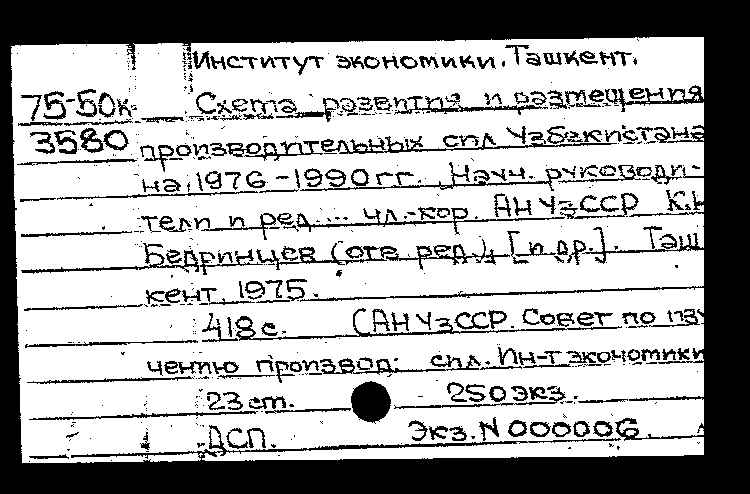 Институт экономики. Ташкент.
75-50к Схема развития и размещения
3580 производительных сил Узбекистана
на 1976-1990 гг. Науч. руководи-
тели и ред.... чл.-кор. АН УзССР К.И
Бедринцев (отв. ред.), [и др.]. Таш
кент, 1975.
418 с. (АН УзССР. Совет по изу
чению производ: сил. Ин-т экономики
23 см. 250 экз.
ДСП. Экз. N 000006.